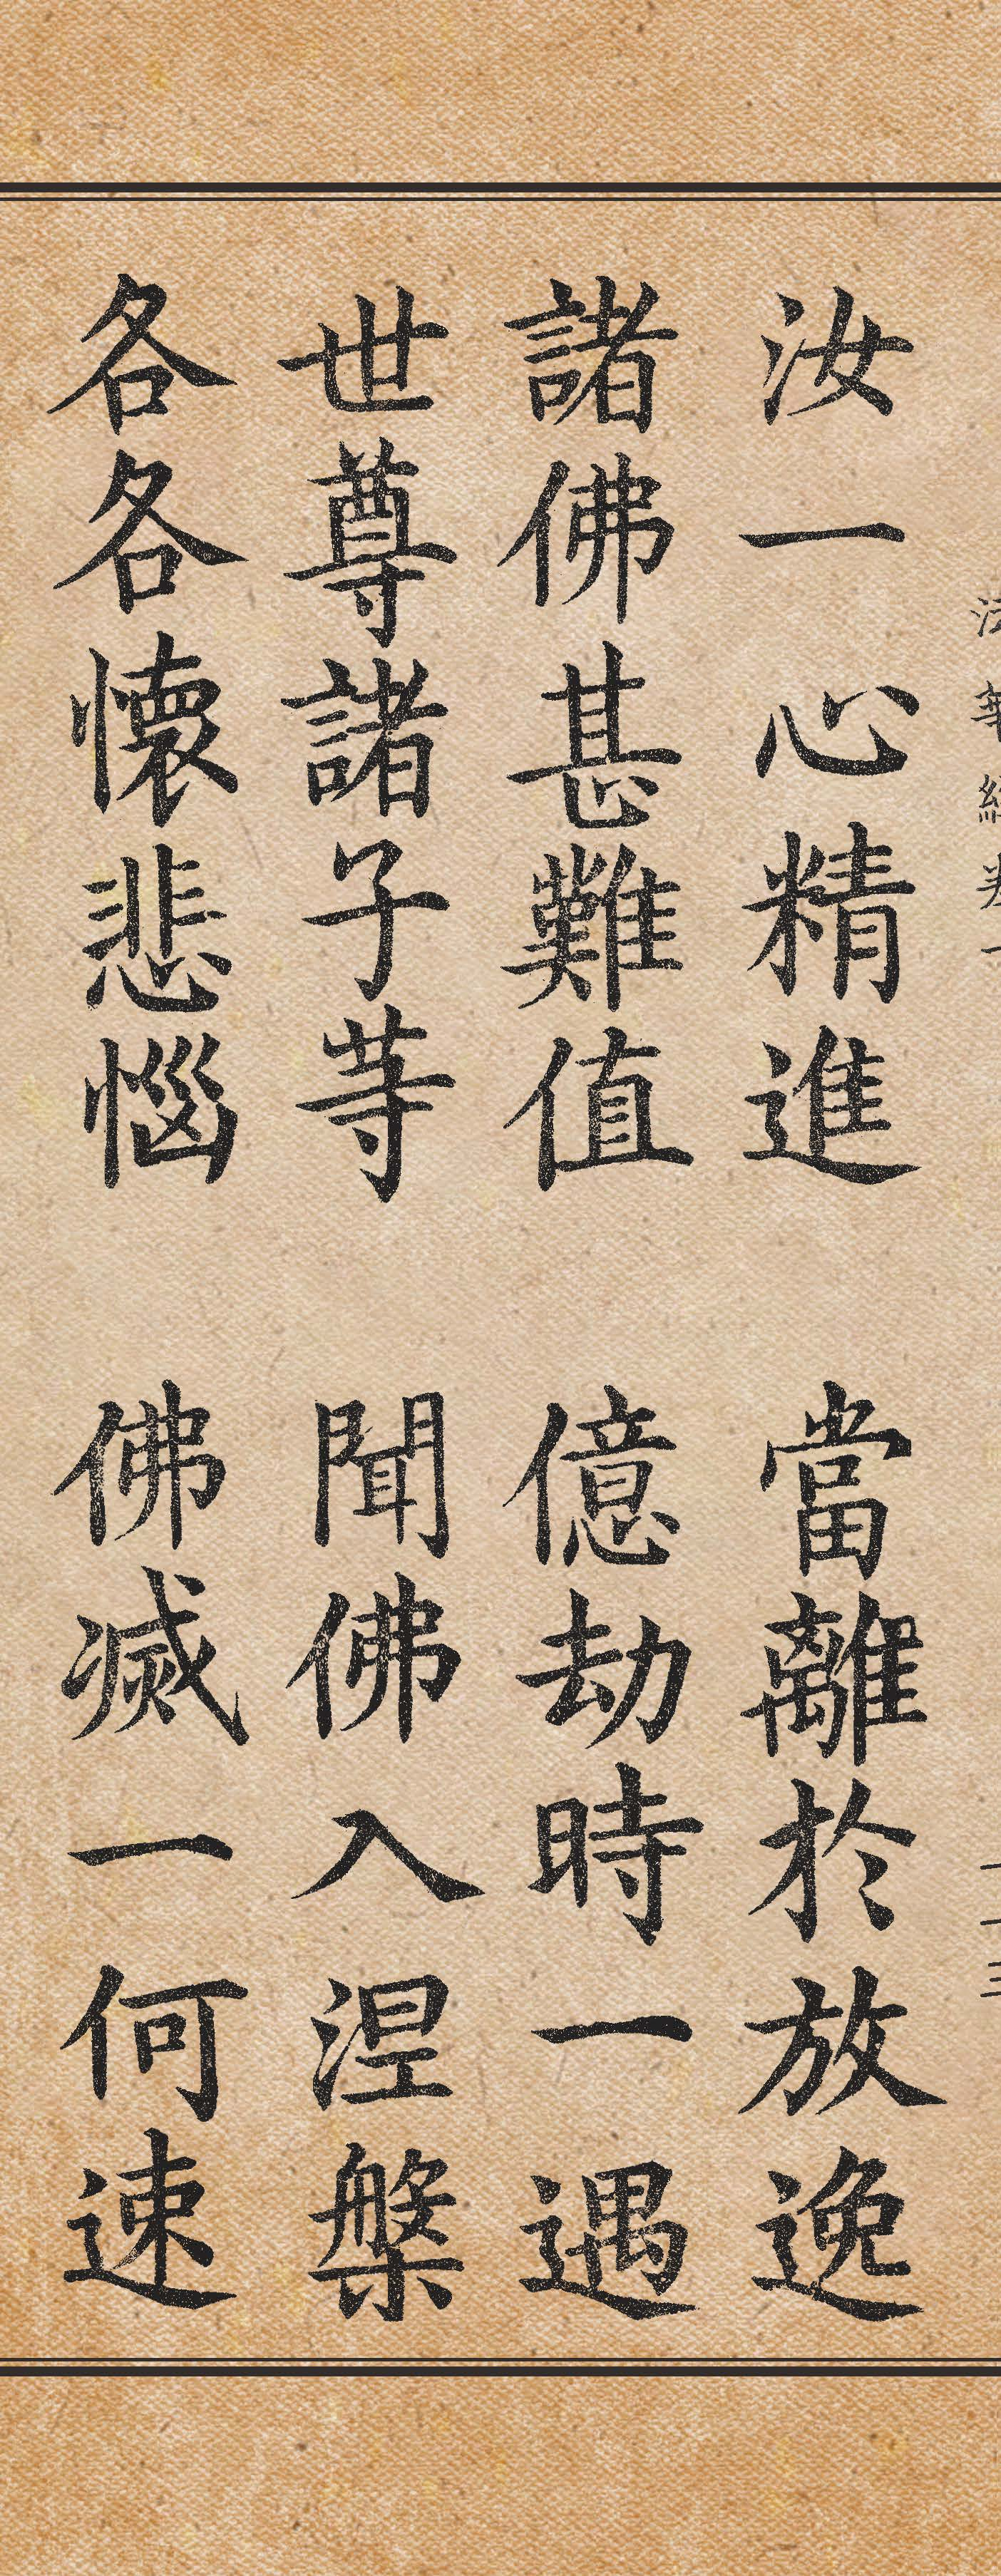 法華經卷一 二十三
汝一心精進 當離於放逸
諸佛甚難值 億劫時一遇
世尊諸子等 聞佛入涅槃
各各懷悲惱 佛滅一何速